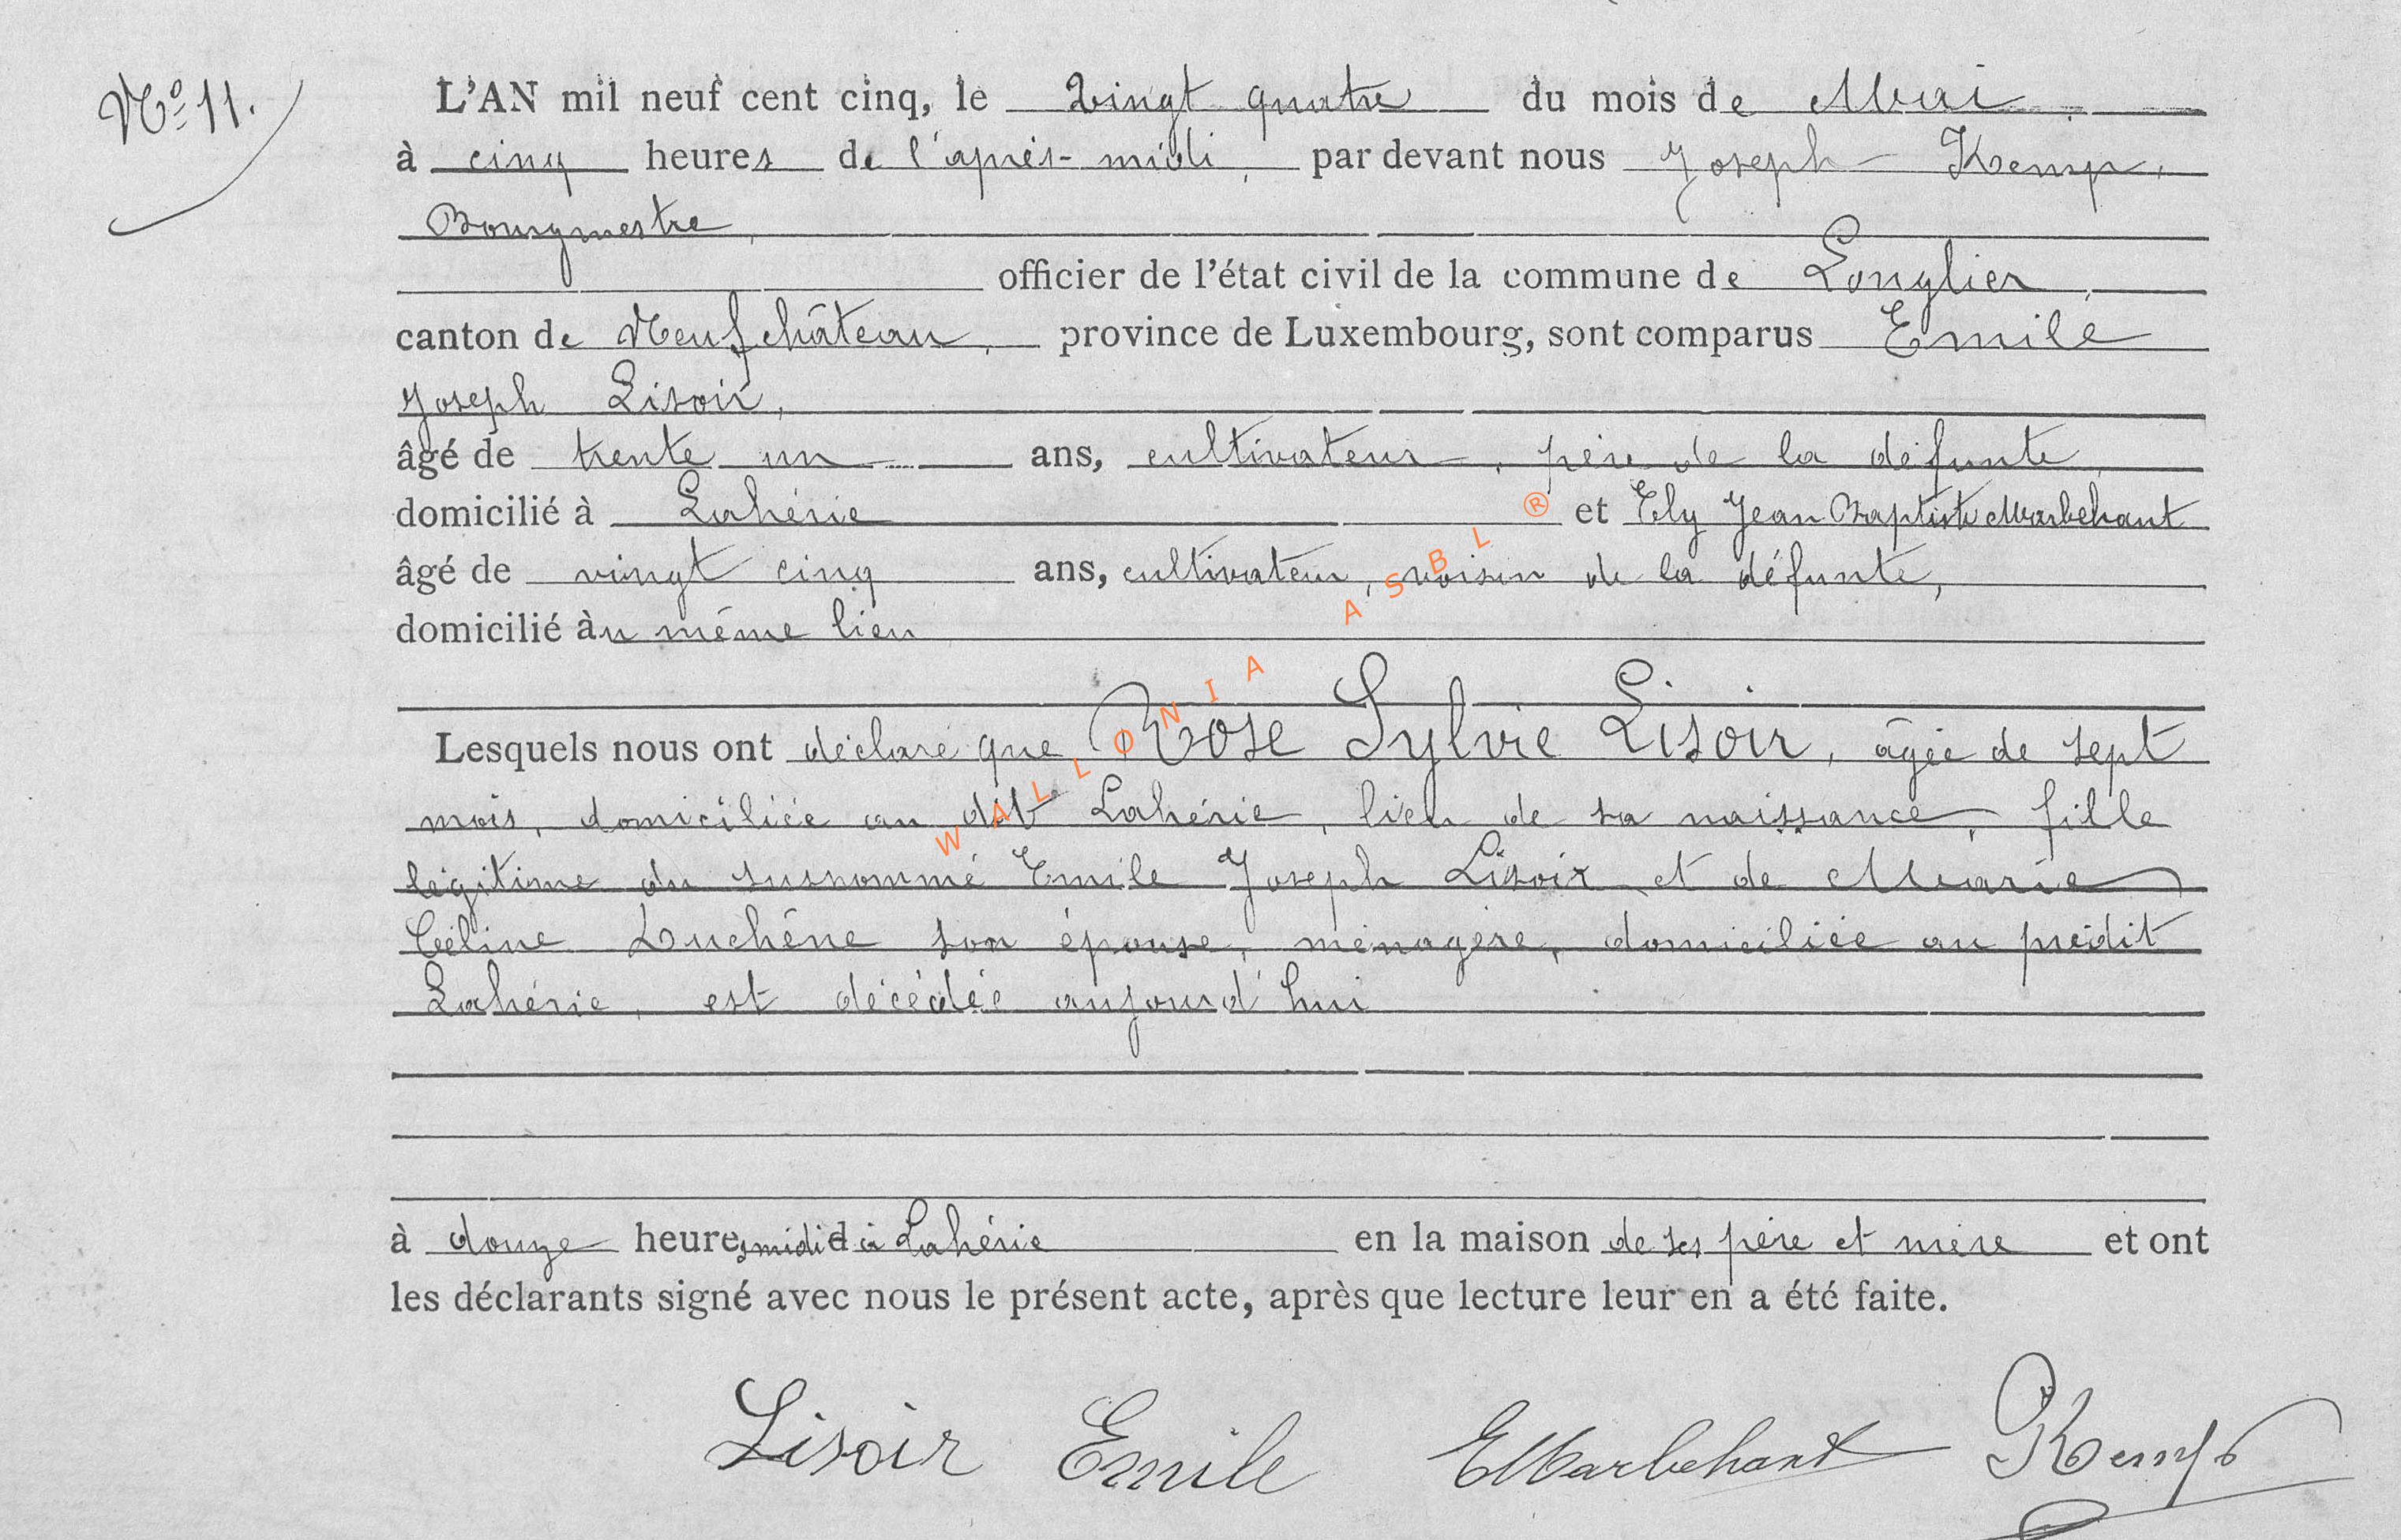 Nº 11.
L'AN mil neuf cent cinq, le vingt quatre du mois de Mai
à cinq heures de l'après-midi, par devant nous Joseph Kemp,
Bourgmestre,
officier de l'état civil de la commune de Longlier,
canton de Neufchâteau, province de Luxembourg, sont comparus Emile
Joseph Lisoir,
âgé de trente un ans, cultivateur, père de la défunte,
domicilié à Lahérie et Ely Jean Baptiste Marbehant
âgé de vingt cinq ans, cultivateur, voisin de la défunte,
domicilié au même lieu
Lesquels nous ont déclaré que Rose Sylvie Lisoir, âgée de sept
mois, domiciliée au dit Lahérie, lieu de sa naissance, fille
légitime du susnommé Emile Joseph Lisoir et de Marie
Céline Duchêne son épouse, ménagère, domiciliée au prédit
Lahérie, est décédée aujourd'hui
à douze heures midi à Lahérie en la maison de ses père et mère et ont
les déclarants signé avec nous le présent acte, après que lecture leur en a été faite.
Lisoir Emile EMarbehant JKemp
WALLONIA ASBL ®